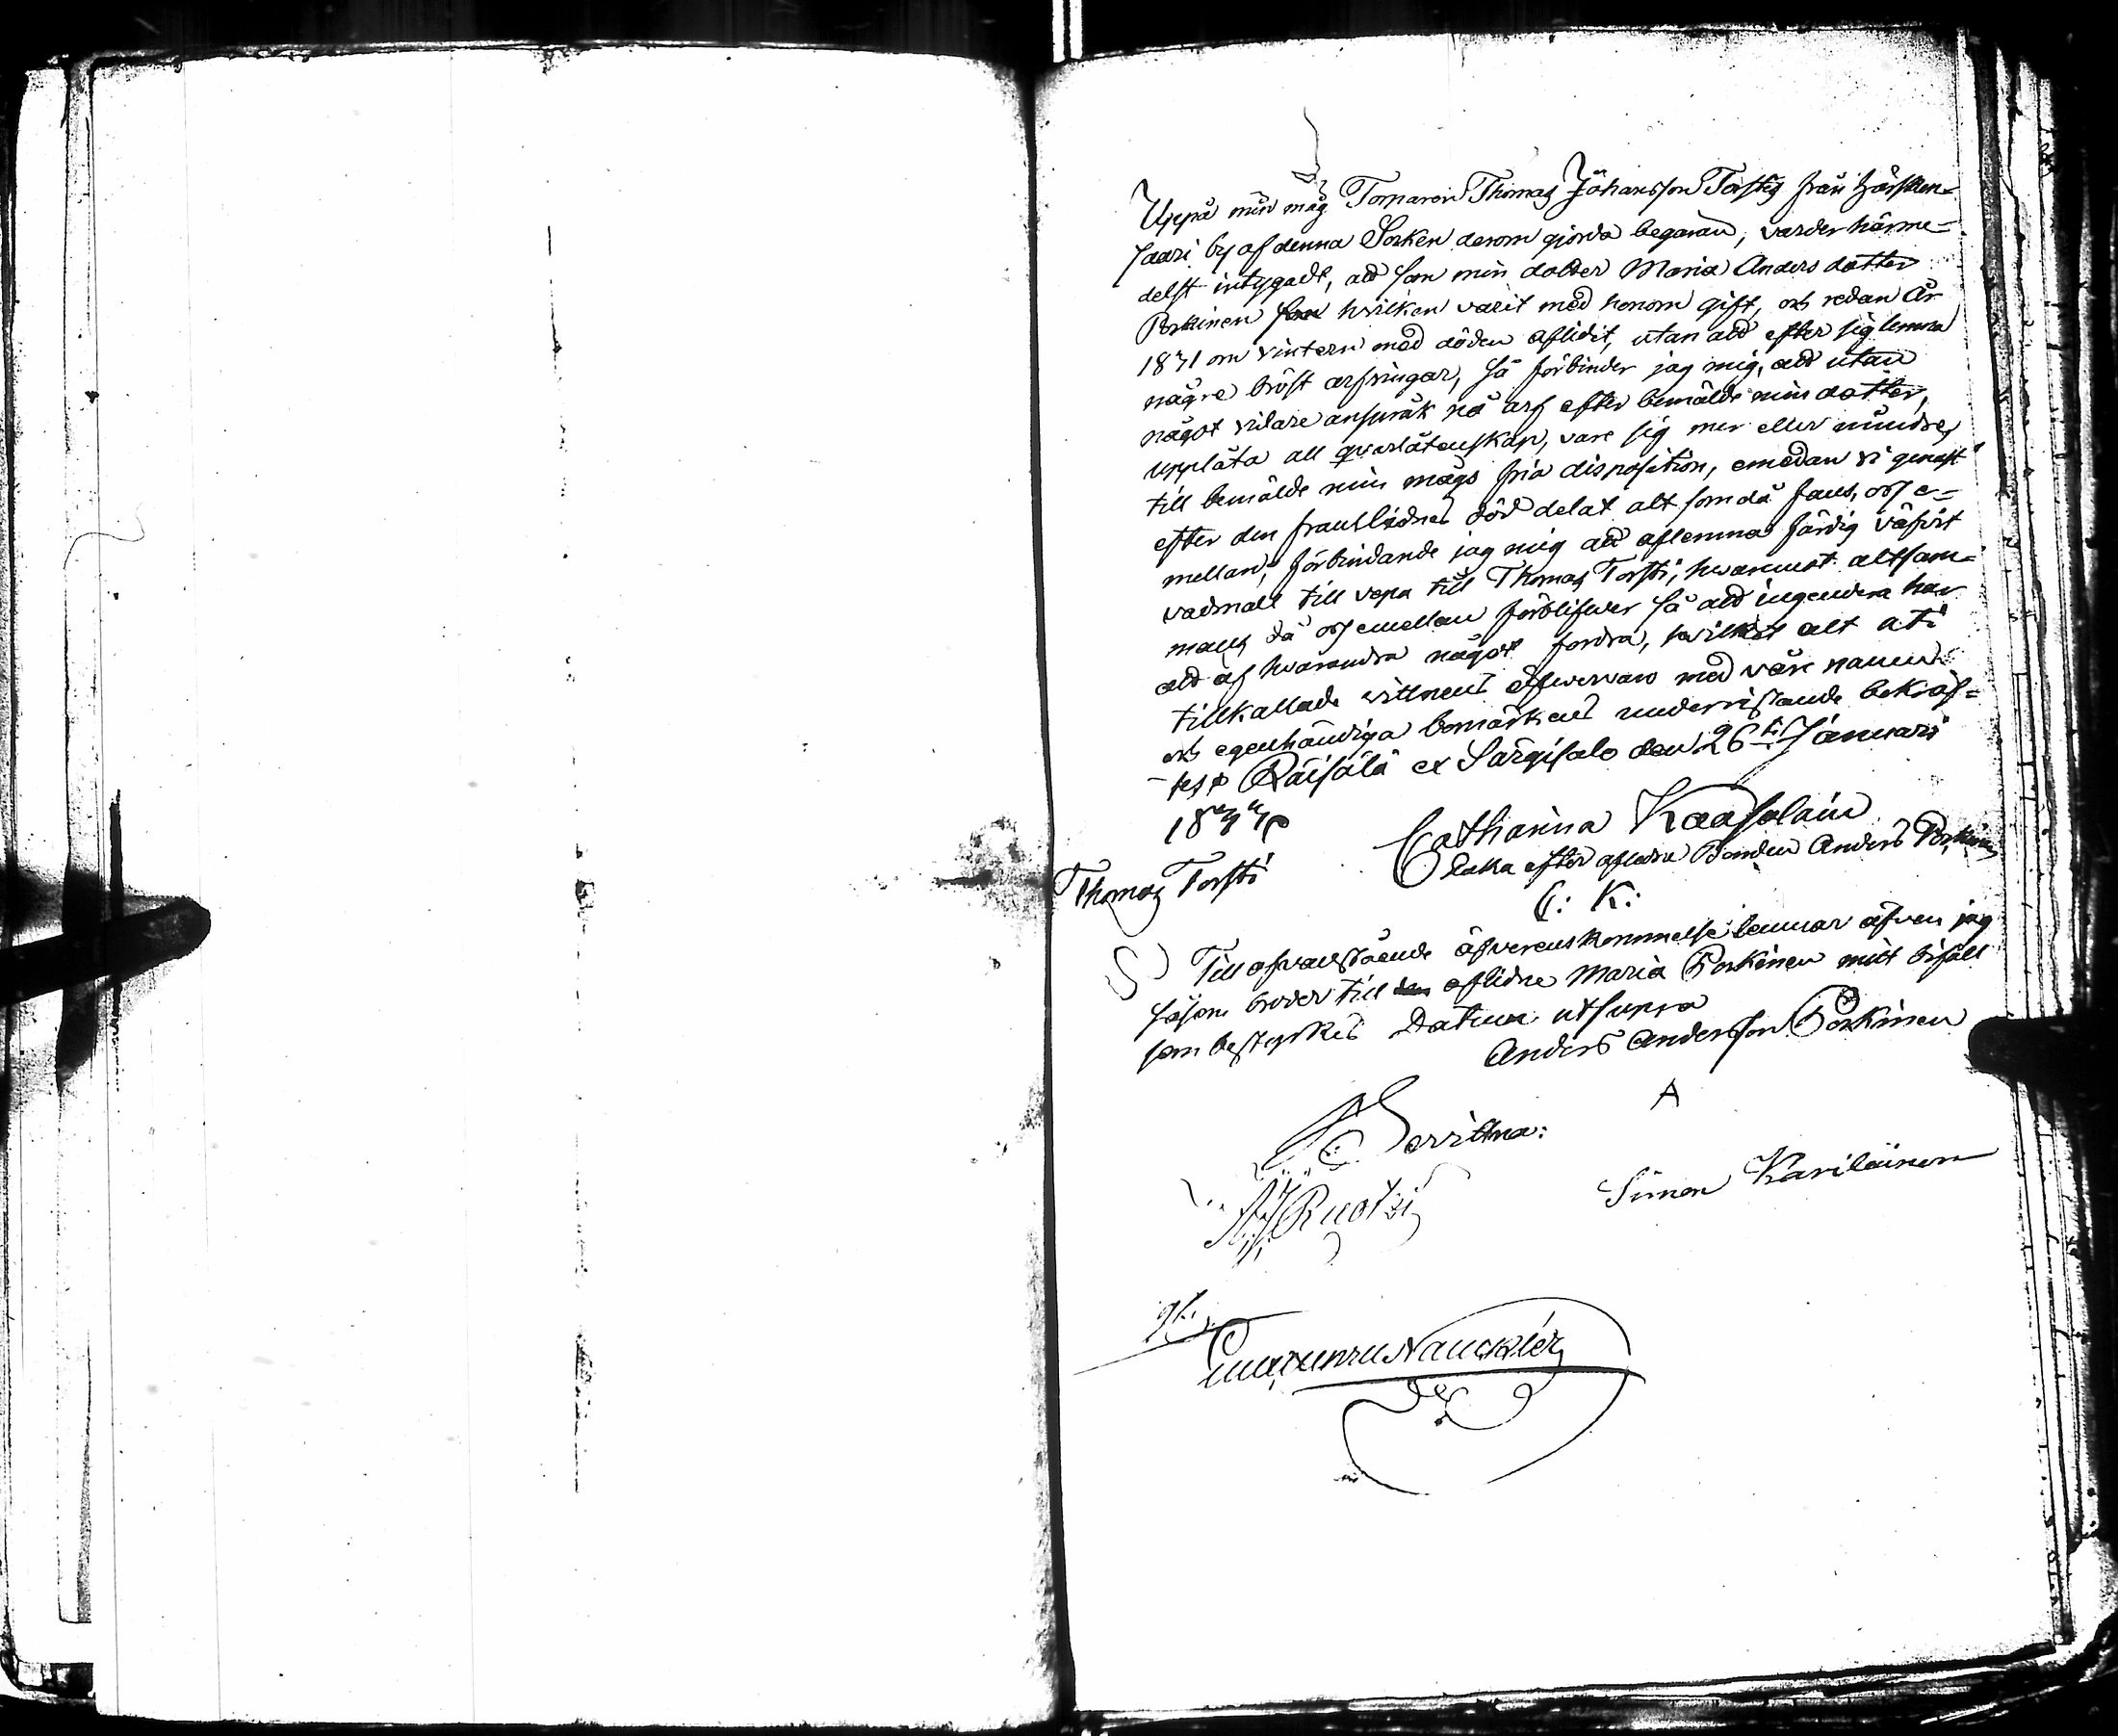 Uppå min måg Torparen Thomas Johansson Torsti från Hörsken-
saari by af denna Socken derom gjorda begäran, varder härme-
delst intygadt, att som min dotter Maria Anders dotter
Porkinen hvilken varit med honom gift, och redan År
1831 om vintern med döden aflidit, utan att efter sig lemna
någre bröst arfvingar, så förbinder jag mig, att utan
något vidare anspråk på arf efter bemälde min dotter,
uppläta all qvarlåtenskap, vare sig mer eller mindre,
till bemälde min mågs fria disposition, emedan vi genast
efter den framlidnes död delat alt som då fans, oss e-
mellan, förbindande jag mig att aflemna färdig väfvit
vadmall till vepa till Thomas Torsti, hvarmed altsam-
mans då oss emellan förblifver så att ingendera har
att af hvarandra något fordra, hvilket alt uti
tillkallade vittnens öfvervaro med våre namns
och egenhändiga bomärkens undervisande bekräf-
tes Räisälä ex Särgisalo den 26ti Januarii
1833
Catharina Kaasalain
Enka efter aflidne Bonden Anders Porkinen
Thomas Torsti
C: K:
Till ofvanstående öfverenskommelse lemnar äfven jag
såsom broder till aflidne Maria Porkinen mitt bifall
som bestyrkes Datum utsupra
Anders Andersson Porkinen
A
Bevittna:
Ruotzi
Simon Kariläinen